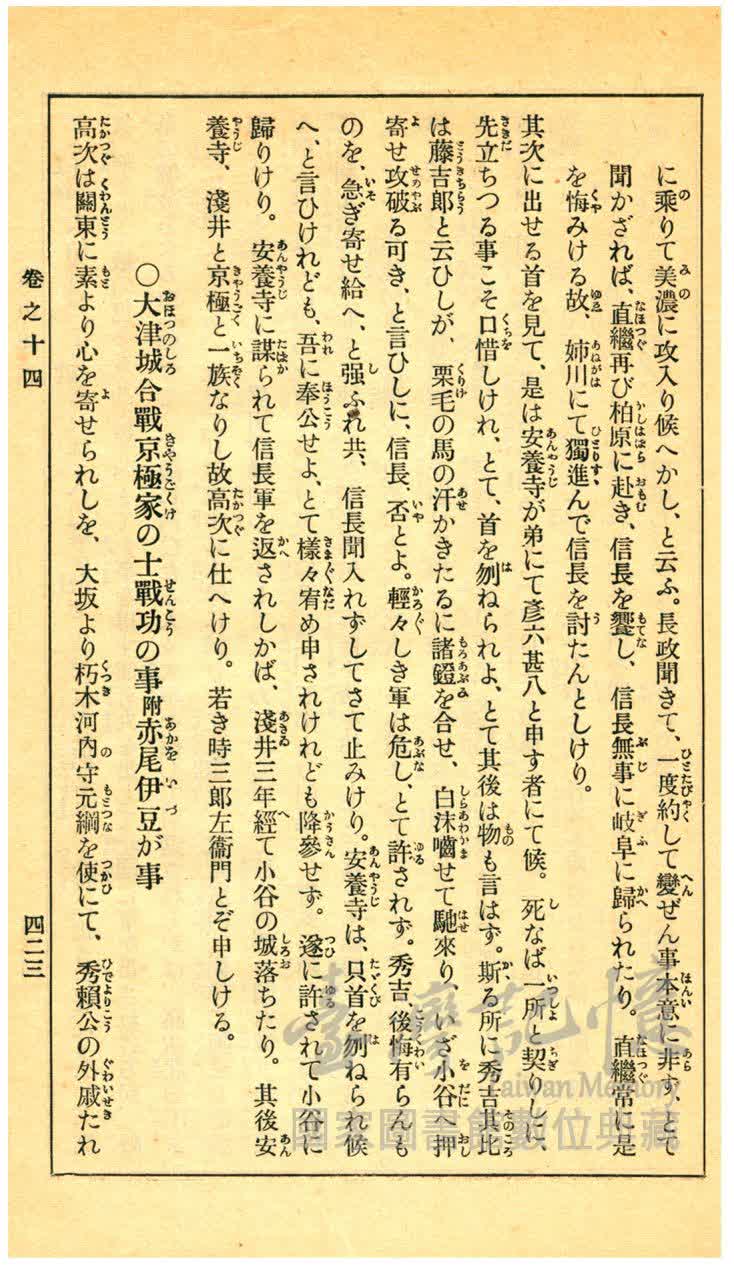 に乘りて美濃に攻入り候へかし、と云ふ。長政聞きて、一度約して變ぜん事本意に非ず、とて
聞かざれば、直繼再び柏原に赴き、信長を饗し、信長無事に岐阜に歸られたり。直繼常に是
を悔みける故、姉川にて獨進んで信長を討たんとしけり。
其次に出せる首を見て、是は安養寺が弟にて彦六甚八と申す者にて候。死なば一所と契りしに、
先立ちつる事こそ口惜しけれ、とて、首を刎ねられよ、とて其後は物も言はず。斯る所に秀吉其比
は藤吉郎と云ひしが、栗毛の馬の汗かきたるに諸鐙を合せ、白沫嚙せて馳來り、いざ小谷へ押
寄せ攻破る可き、と言ひしに、信長、否とよ。輕々しき軍は危し、とて許されず。秀吉、後悔有らんも
のを、急ぎ寄せ給へ、と强ふれ共、信長聞入れずしてさて止みけり。安養寺は、只首を刎ねられ候
へ、と言ひけれども、吾に奉公せよ、とて樣々宥め申されけれども降參せず。遂に許されて小谷に
歸りけり。安養寺に謀られて信長軍を返されしかば、淺井三年經て小谷の城落ちたり。其後安
養寺、淺井と京極と一族なりし故高次に仕へけり。若き時三郎左衞門とぞ申しける。
○大津城合戰京極家の士戰功の事附赤尾伊豆が事
高次は關東に素より心を寄せられしを、大坂より朽木河內守元綱を使にて、秀賴公の外戚たれ
卷之十四
四二三
臺灣記憶
Taiwan Memory
國家圖書館數位典藏